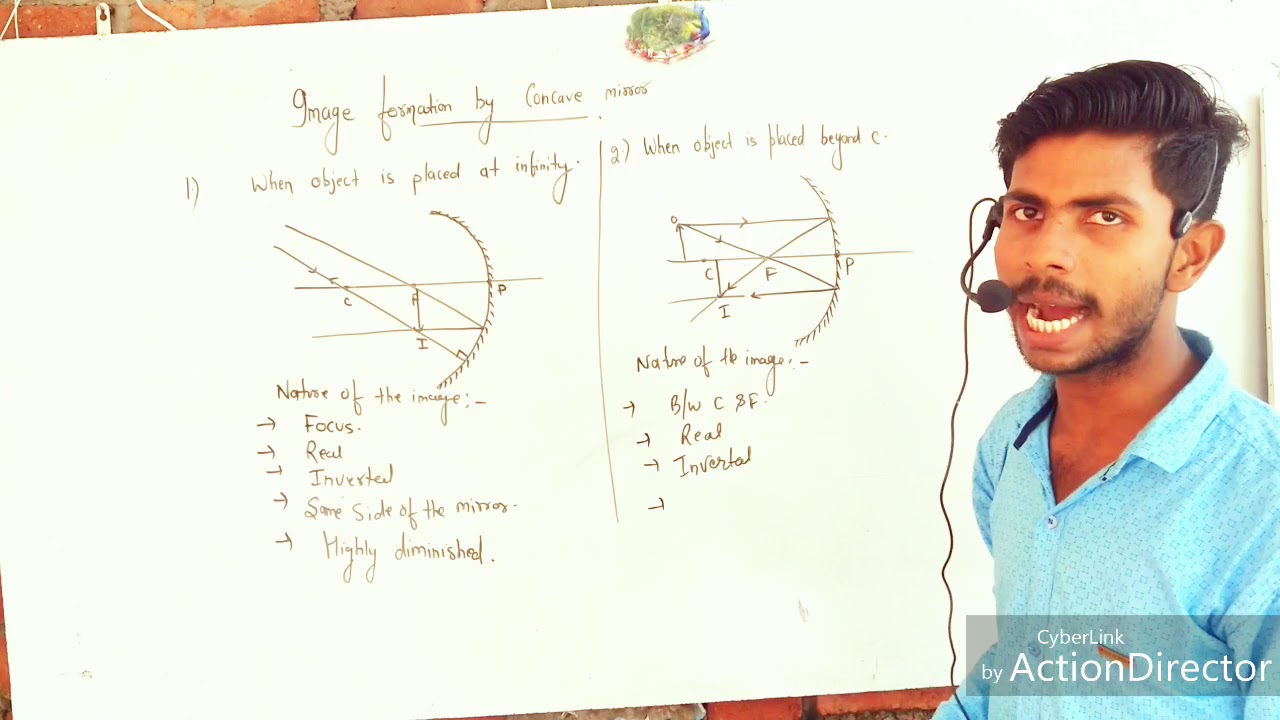 Image formation by Concave mirror
1.) When object is placed at infinity.
C
F
P
I
Nature of the image:-
→ Focus.
→ Real
→ Inverted
→ Same Side of the mirror.
→ Highly diminished.
2.) When object is placed beyond C.
O
C
F
P
I
Nature of the image:-
→ B/w C & F.
→ Real
→ Inverted
→
CyberLink
by ActionDirector